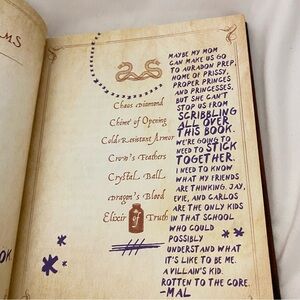 MS
Chaos Diamond
Chime of Opening
Cold-Resistant Armor
Crow's Feathers
Crystal Ball
Dragon's Blood
Elixir of Truth
MAYBE MY MOM
CAN MAKE US GO
TO AURADON PREP,
HOME OF PRISSY,
PROPER PRINCES
AND PRINCESSES,
BUT SHE CAN'T
STOP US FROM
SCRIBBLING
ALL OVER
THIS BOOK.
WE'RE GOING TO
NEED TO STICK
TOGETHER.
I NEED TO KNOW
WHAT MY FRIENDS
ARE THINKING. JAY,
EVIE, AND CARLOS
ARE THE ONLY KIDS
IN THAT SCHOOL
WHO COULD
POSSIBLY
UNDERSTAND WHAT
IT'S LIKE TO BE ME.
A VILLAIN'S KID.
ROTTEN TO THE CORE.
-MAL
OK